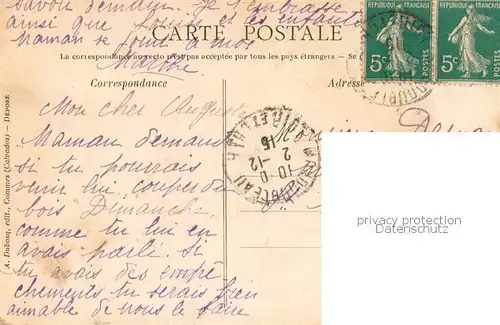 savoir demain. Je t'embrasse
ainsi que Louise et les enfants
Maman se joint à moi
Marthe
CARTE POSTALE
La correspondance au recto n'est pas acceptée par tous les pays étrangers. — Se
RÉPUBLIQUE FRANÇAISE
5c
POSTES
RÉPUBLIQUE FRANÇAISE
5c
POSTES
Correspondance
Adresse
A. Dubosq, edit., Commes (Calvados) — DÉPOSÉ
Mon cher Auguste
Maman demande
si tu pourrais
venir lui couper du
bois Dimanche
comme tu lui en
avais parlé. Si
tu avais des empê
chements tu serais bien
aimable de nous le faire
10
2-12
15
privacy protection
Datenschutz